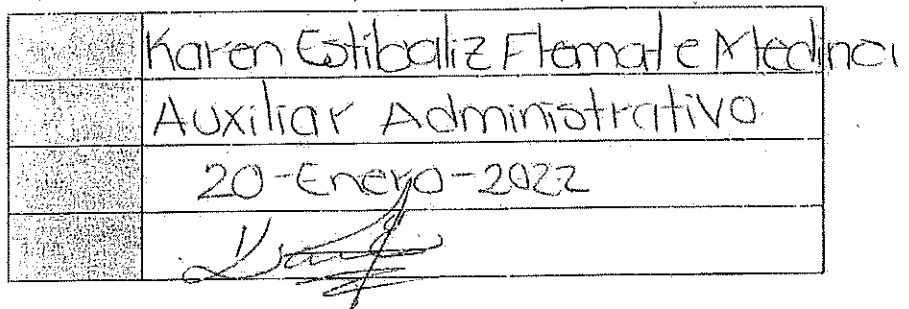 Karen Estibaliz Flemate Medina
Auxiliar Administrativo
20-Enero-2022